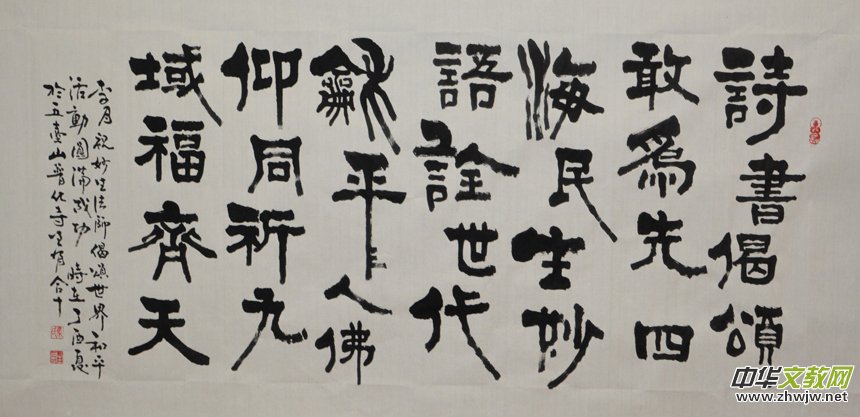 詩書偈頌
敢爲先四
海民生妙
語詮世代
龢平人佛
仰同祈九
域福齊天
祝妙生法師偈頌世界和平
活動圓滿成功 時在丁酉夏
於五臺山普化寺 合十
中华文教网
www.zhwjw.net